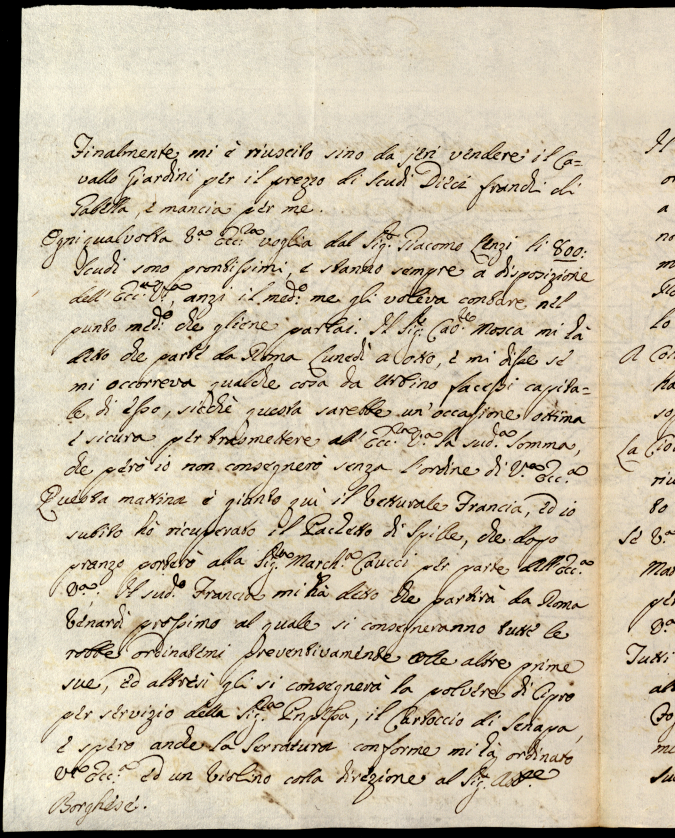 Finalmente mi è riuscito sino da jeri vendere il Ca=
vallo Giardini per il prezzo di Scudi Dieci franchi di
Gabella, e mancia per me.
Ogniqualvolta V.ª Ecc.ª voglia dal Sig.r Giacomo Lenzi li 800:
Scudi sono prontissimi, e stanno sempre a disposizione
dell'Ecc.ª V.ª, anzi il med.º me gli voleva contare nel
punto med.º che gliene parlai. Il Sig.r Cav.re Mosca mi hà
detto che parte da Roma Lunedì a otto, e mi disse se
mi occorreva qualche cosa da Urbino facessi capita=
le di esso, sicchè questa sarebbe un'occasione ottima
e sicura per trasmettere all'Ecc.ª V.ª la sud.ª somma,
che però io non consegnerò senza l'ordine di V.ª Ecc.ª
Questa mattina è giunto quì il Vetturale Francia, ed io
subito hò ricuperato il Pachetto di Spille, che dopo
pranzo porterò alla Sig.ra March.ª Caucci per parte dell'Ecc.ª
V.ª. Il sud.º Francia mi hà detto che partirà da Roma
Venardì prossimo al quale si consegneranno tutte le
robbe ordinatemi preventivamente colle altre prime
sue, ed altresì gli si consegnerà la polvere di Cipro
per servizio della Sig.ra, il Cartoccio di Senapa,
e spero anche la Serratura conforme mi hà ordinato
V.ª Ecc.ª ed un Violino colla direzione al Sig.r
Borghese.